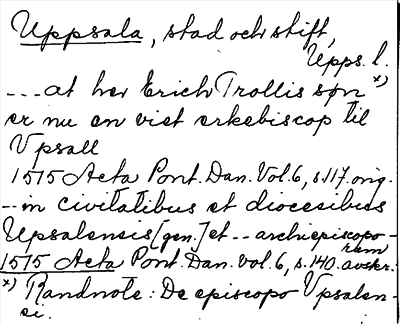 Uppsala, stad och stift,
Upps. l.
--- at her Erich Trollis søn *)
er nu en viet erkebiscop til
Vpsall
1515 Acta Pont. Dan. Vol. 6, s. 117. orig.
-- in civitatibus et diocesibus
Upsalensis [gen.] et -- archiepiscopo-
rum
1515 Acta Pont. Dan. vol. 6, s. 140. avskr.
*) Randnote: De episcopo Vpsalen-
si.